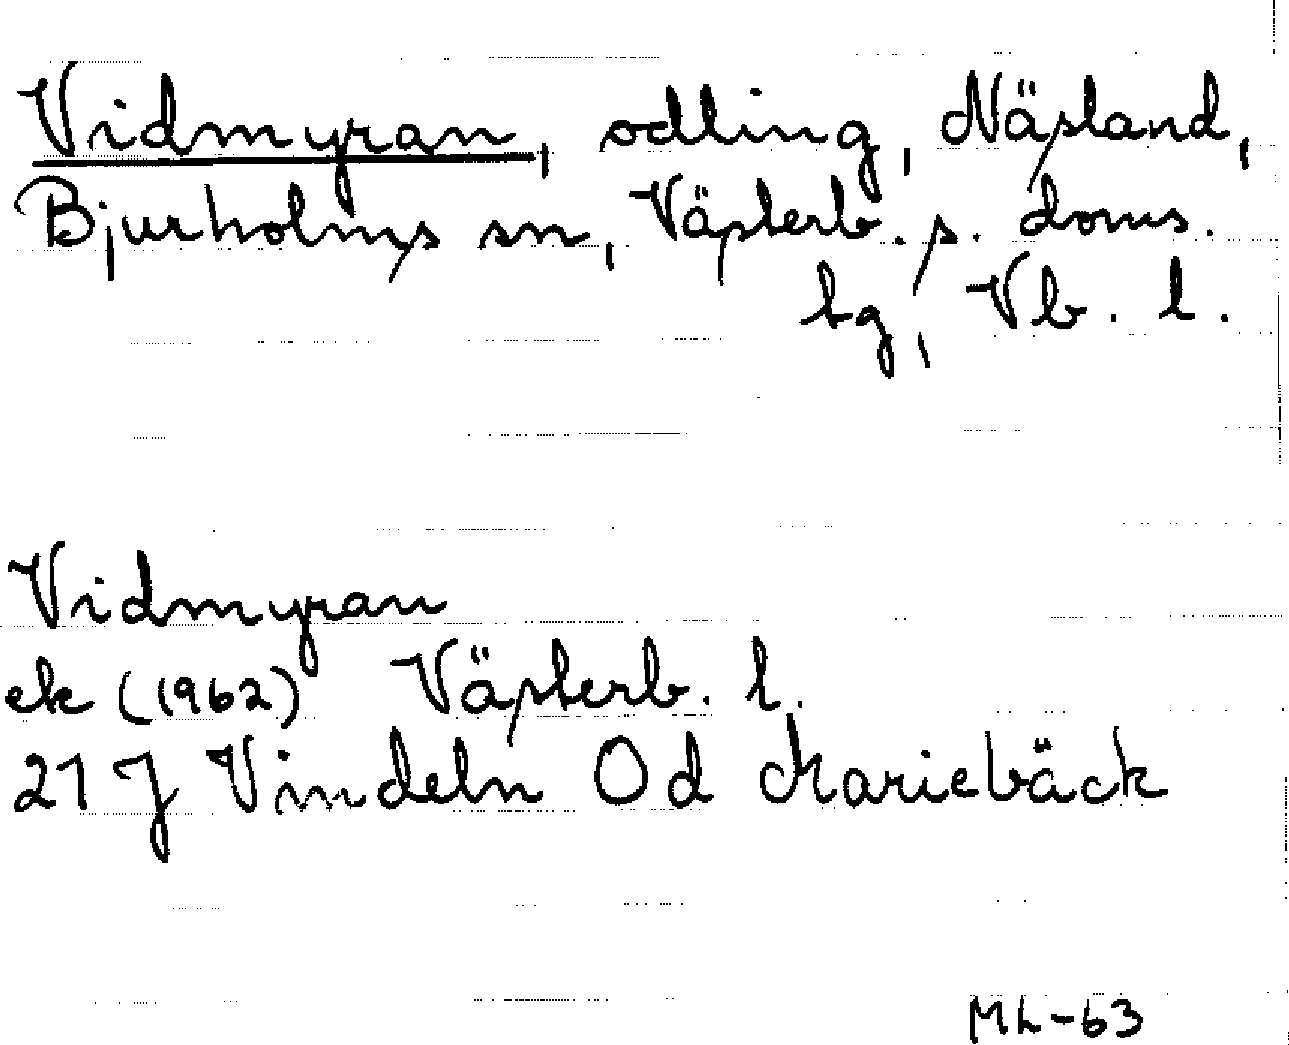 Vidmyran, odling, Näsland,
Bjurholms sn, Västerb. s. doms.
tg, Vb. l.
Vidmyran
ek (1962) Västerb. l.
21 J Vindeln 0d Mariebäck
ML-63